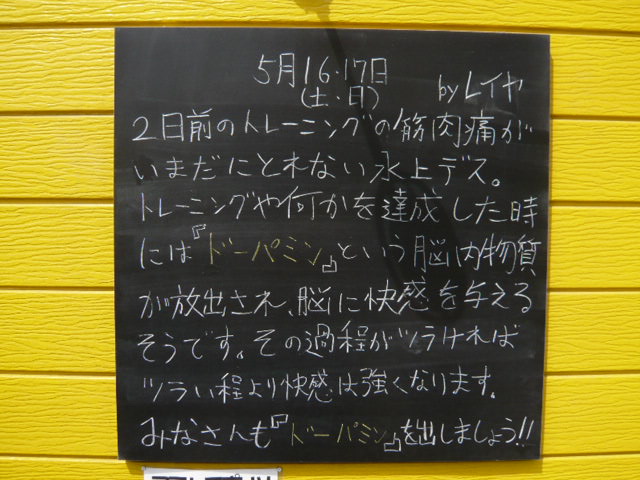 5月16.17日
(土、日) byレイヤ
2日前のトレーニングの筋肉痛が
いまだにとれない水上デス。
トレーニングや何かを達成した時
には『ドーパミン』という脳内物質
が放出され、脳に快感を与える
そうです。その過程がツラければ
ツラい程より快感は強くなります。
みなさんも『ドーパミン』を出しましょう!!